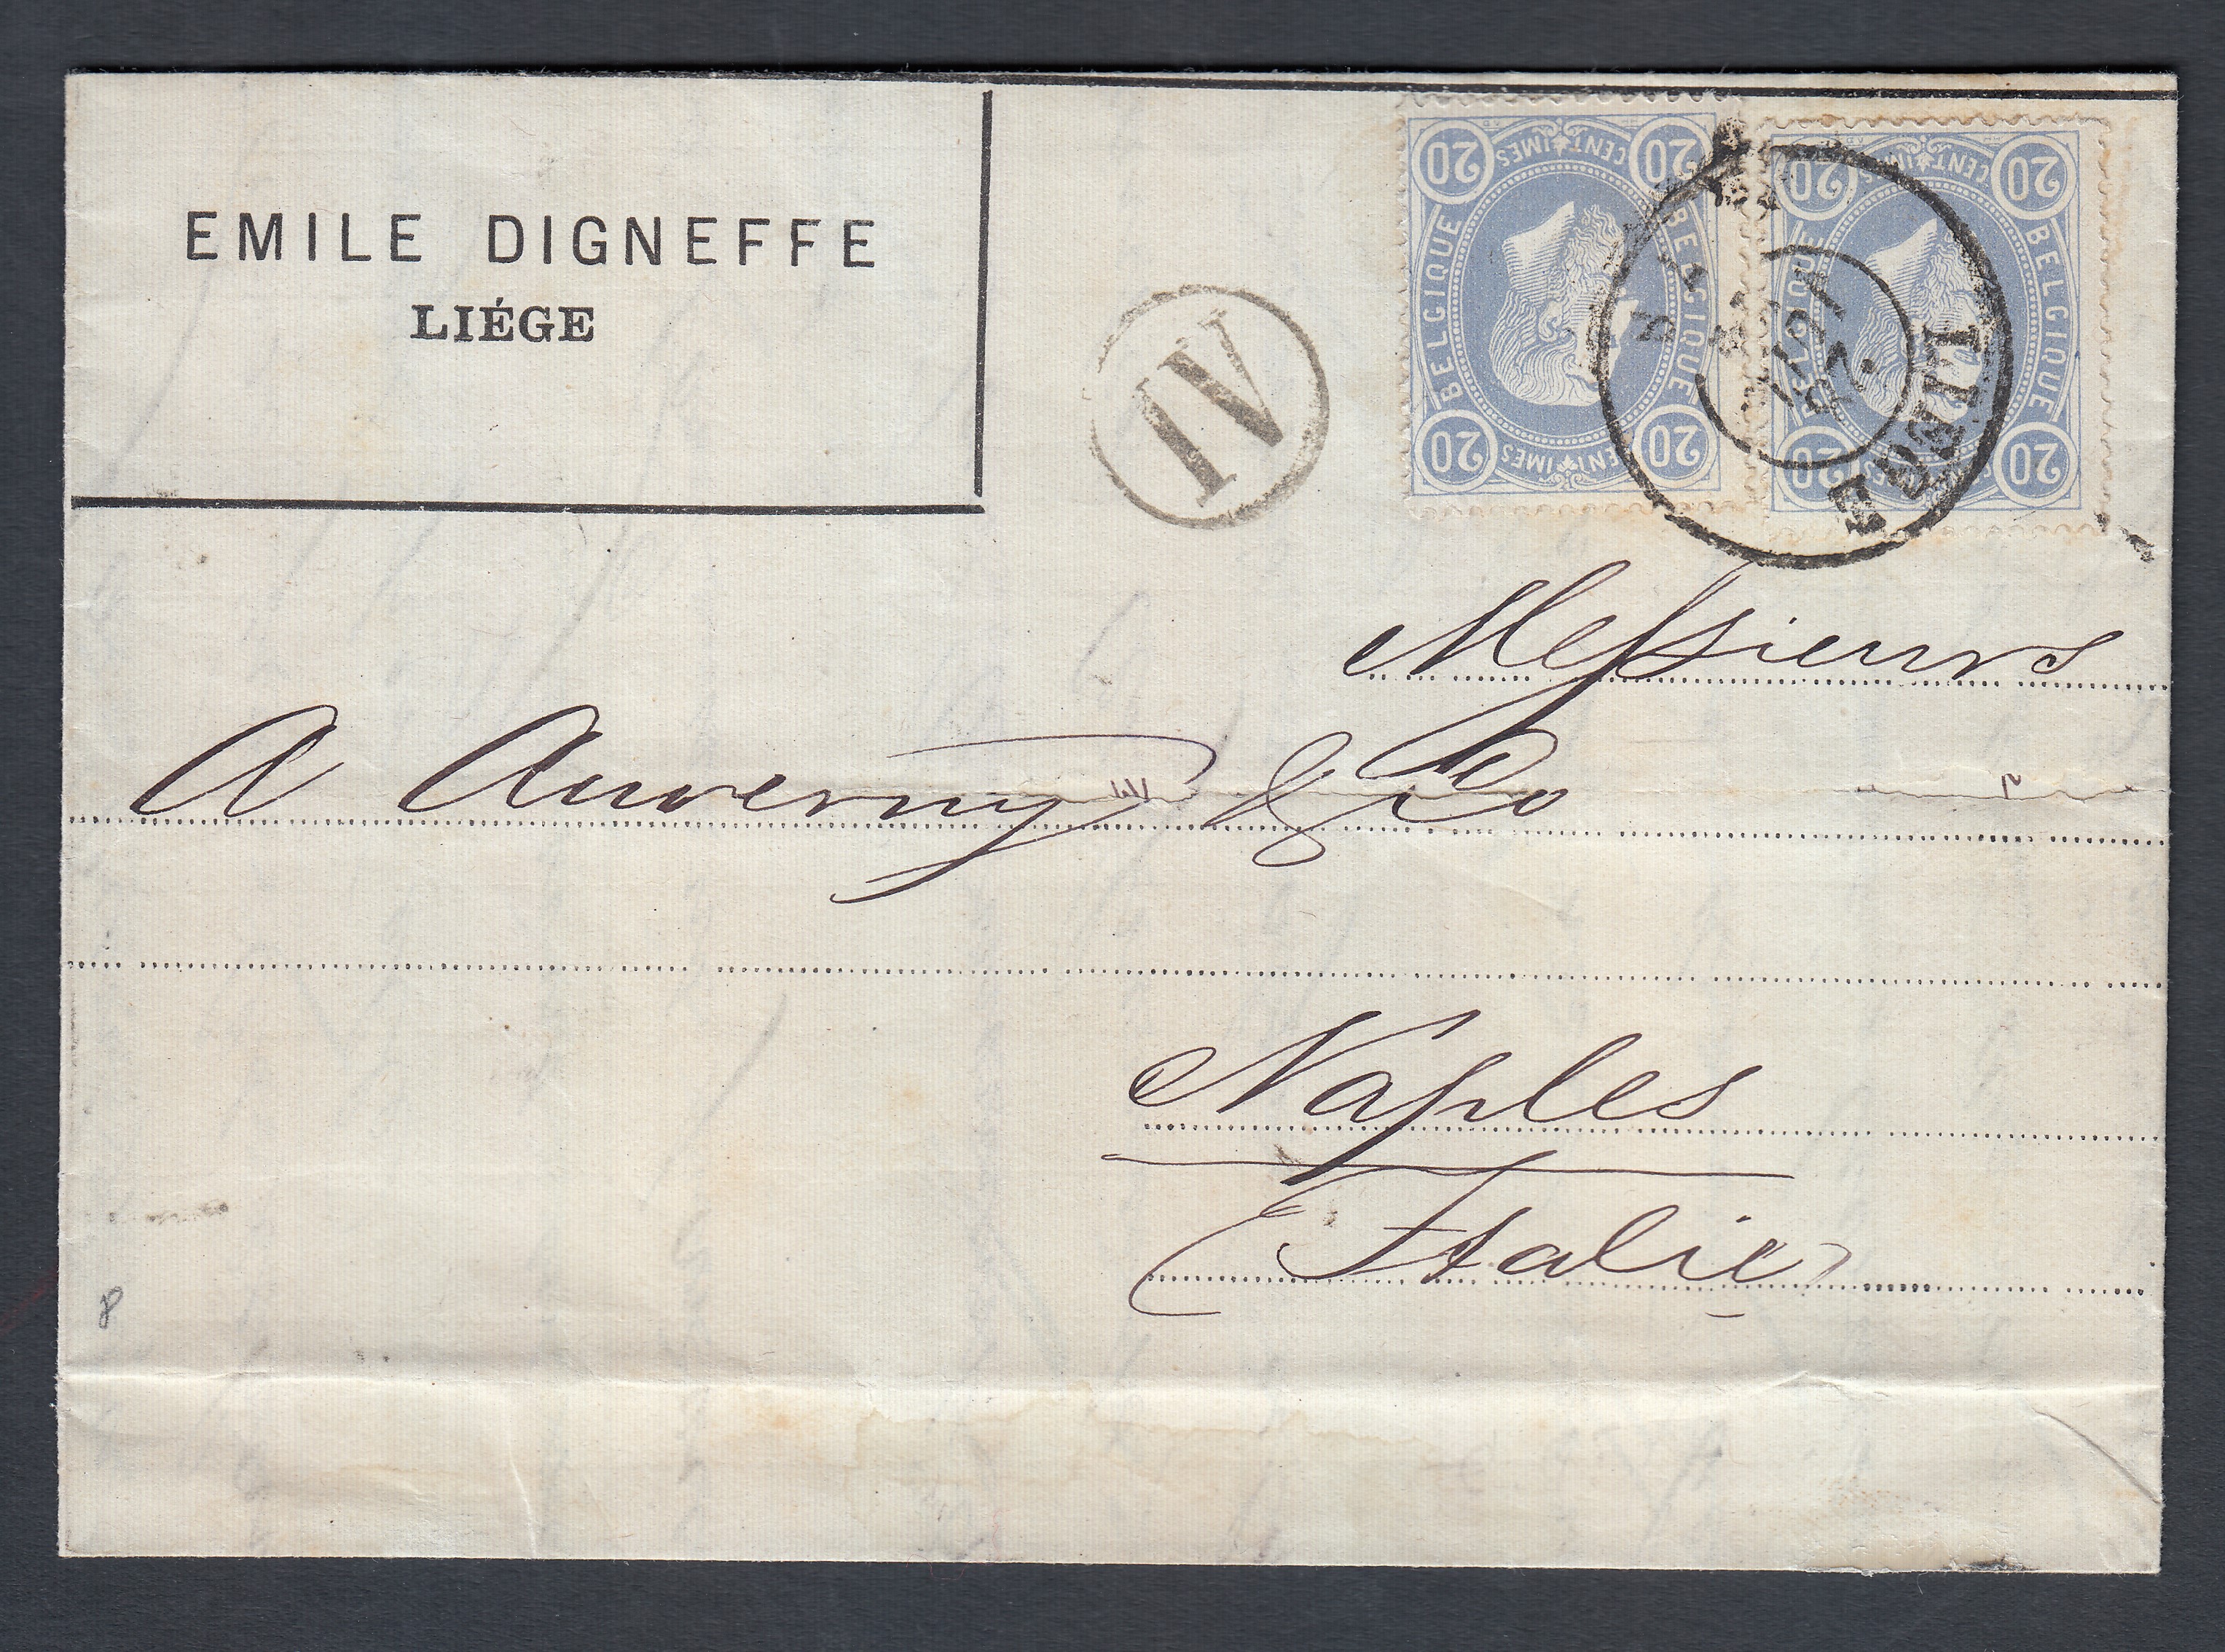 EMILE DIGNEFFE
LIÉGE
IV
20 CENTIMES 20
BELGIQUE BELGIQUE
20 CENTIMES 20
20 CENTIMES 20
BELGIQUE BELGIQUE
20 20
LIEGE
Messieurs
A Auverny & Co
Naples
Italie
8